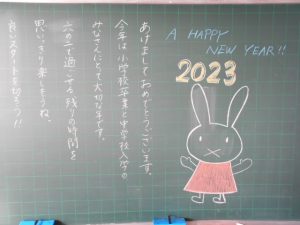 A HAPPY
NEW YEAR!!
2023
あけましておめでとうございます。
今年は小学校卒業と中学校入学の
みなさんにとって大切な年です。
六の二で過ごせる残りの時間を
思いっきり楽しもうね。
良いスタートを切ろう!!